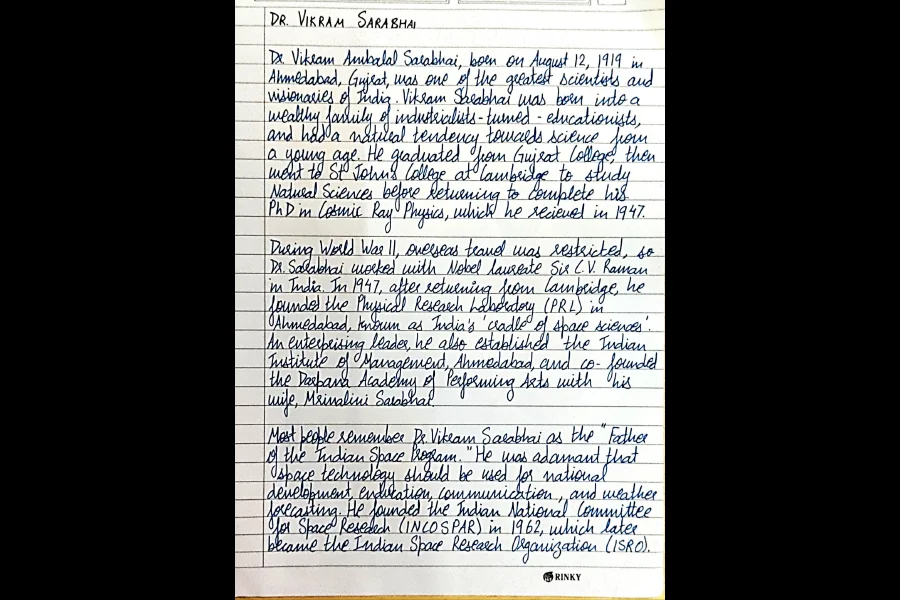 DR. VIKRAM SARABHAI
Dr. Vikram Ambalal Sarabhai, born on August 12, 1919 in
Ahmedabad, Gujrat, was one of the greatest scientists and
visionaries of India. Vikram Sarabhai was born into a
wealthy family of industrialists-turned-educationists,
and had a natural tendency towards science from
a young age. He graduated from Gujrat College, then
went to St John's College at Cambridge to study
Natural Sciences before returning to complete his
PhD in Cosmic Ray Physics, which he recieved in 1947.
During World War II, overseas travel was restricted, so
Dr. Sarabhai worked with Nobel laureate Sir C.V. Raman
in India. In 1947, after returning from Cambridge, he
founded the Physical Research Laboratory (PRL) in
Ahmedabad, known as India's 'cradle of space sciences'.
An enterprising leader, he also established the Indian
Institute of Management, Ahmedabad, and co-founded
the Darpana Academy of Performing Arts with his
wife, Mrinalini Sarabhai.
Most people remember Dr. Vikram Sarabhai as the "Father
of the Indian Space Program." He was adamant that
space technology should be used for national
development, education, communication, and weather
forecasting. He founded the Indian National Committee
for Space Research (INCOSPAR) in 1962, which later
became the Indian Space Research Organization (ISRO).
RINKY